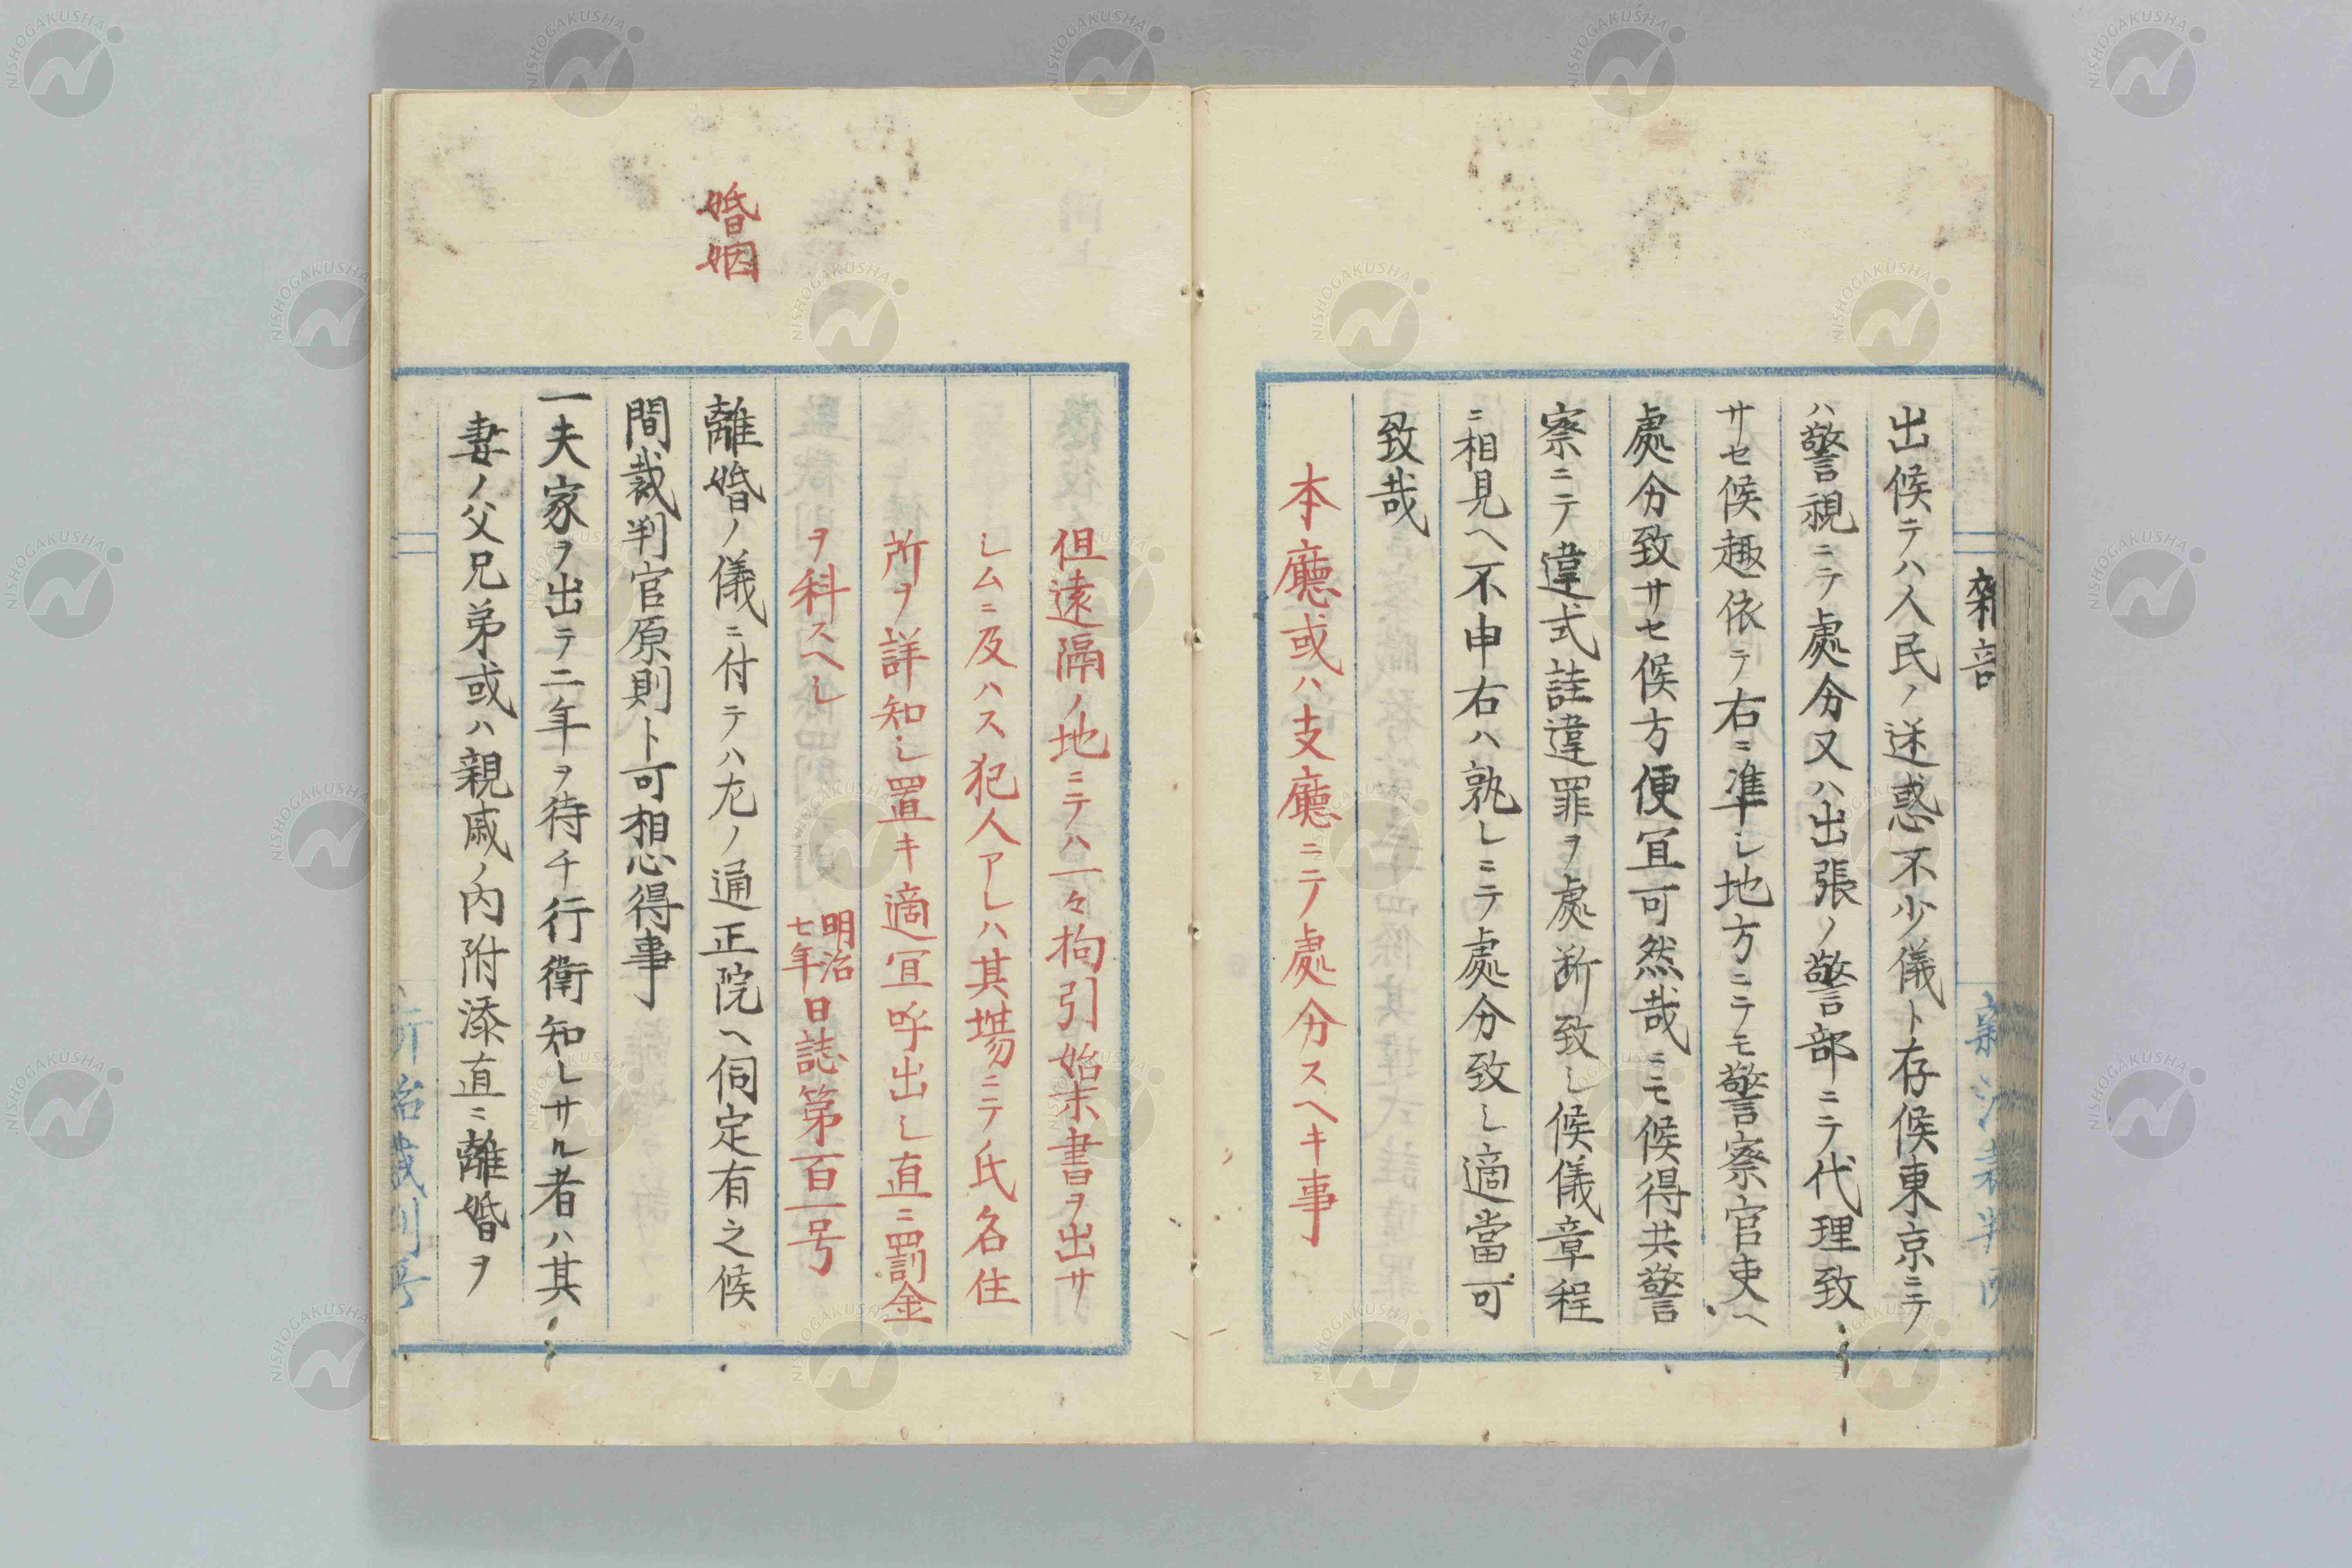 雜部
出候テハ人民ノ迷惑不少儀ト存候東京ニテ
ハ警視ニテ處分又ハ出張ノ警部ニテ代理致
サセ候趣依テ右ニ準シ地方ニテモ警察官吏ヘ
處分致サセ候方便宜可然哉ニモ候得共警
察ニテ違式詿違罪ヲ處断致シ候儀章程
ニ相見ヘ不申右ハ孰レニテ處分致シ適當可
致哉
本廳或ハ支廳ニテ處分スヘキ事
但遠隔ノ地ニテハ一々拘引始末書ヲ出サ
シムニ及ハス犯人アレハ其場ニテ氏名住
所ヲ詳知シ置キ適宜呼出シ直ニ罰金
ヲ科スヘシ 明治七年日誌第百一号
婚姻
離婚ノ儀ニ付テハ左ノ通正院ヘ伺定有之候
間裁判官原則ト可相心得事
一夫家ヲ出テ二年ヲ待チ行衛知レサル者ハ其
妻ノ父兄弟或ハ親戚ノ内附添直ニ離婚ヲ
NISHOGAKUSHA